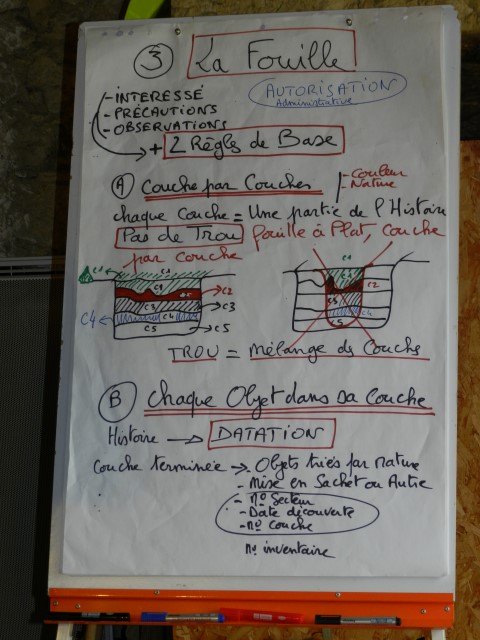 3 La Fouille
AUTORISATION
Administrative
- INTERESSÉ
- PRÉCAUTIONS
- OBSERVATIONS
+ 2 Règles de Base
A Couche par Couches
- Couleur
- Nature
chaque Couche = Une partie de l'Histoire
Pas de Trou fouille à Plat, Couche
par couche
C1 C1 C1
C2 C2
C3 C3 C3
C4 C4 C4
C5 C5 C5
TROU = Mélange des Couches
B Chaque Objet dans sa Couche
Histoire → DATATION
Couche terminée → Objets triés par Nature
- Mise en Sachet ou Autre
- N° Secteur
- Date découverte
- N° Couche
N° inventaire